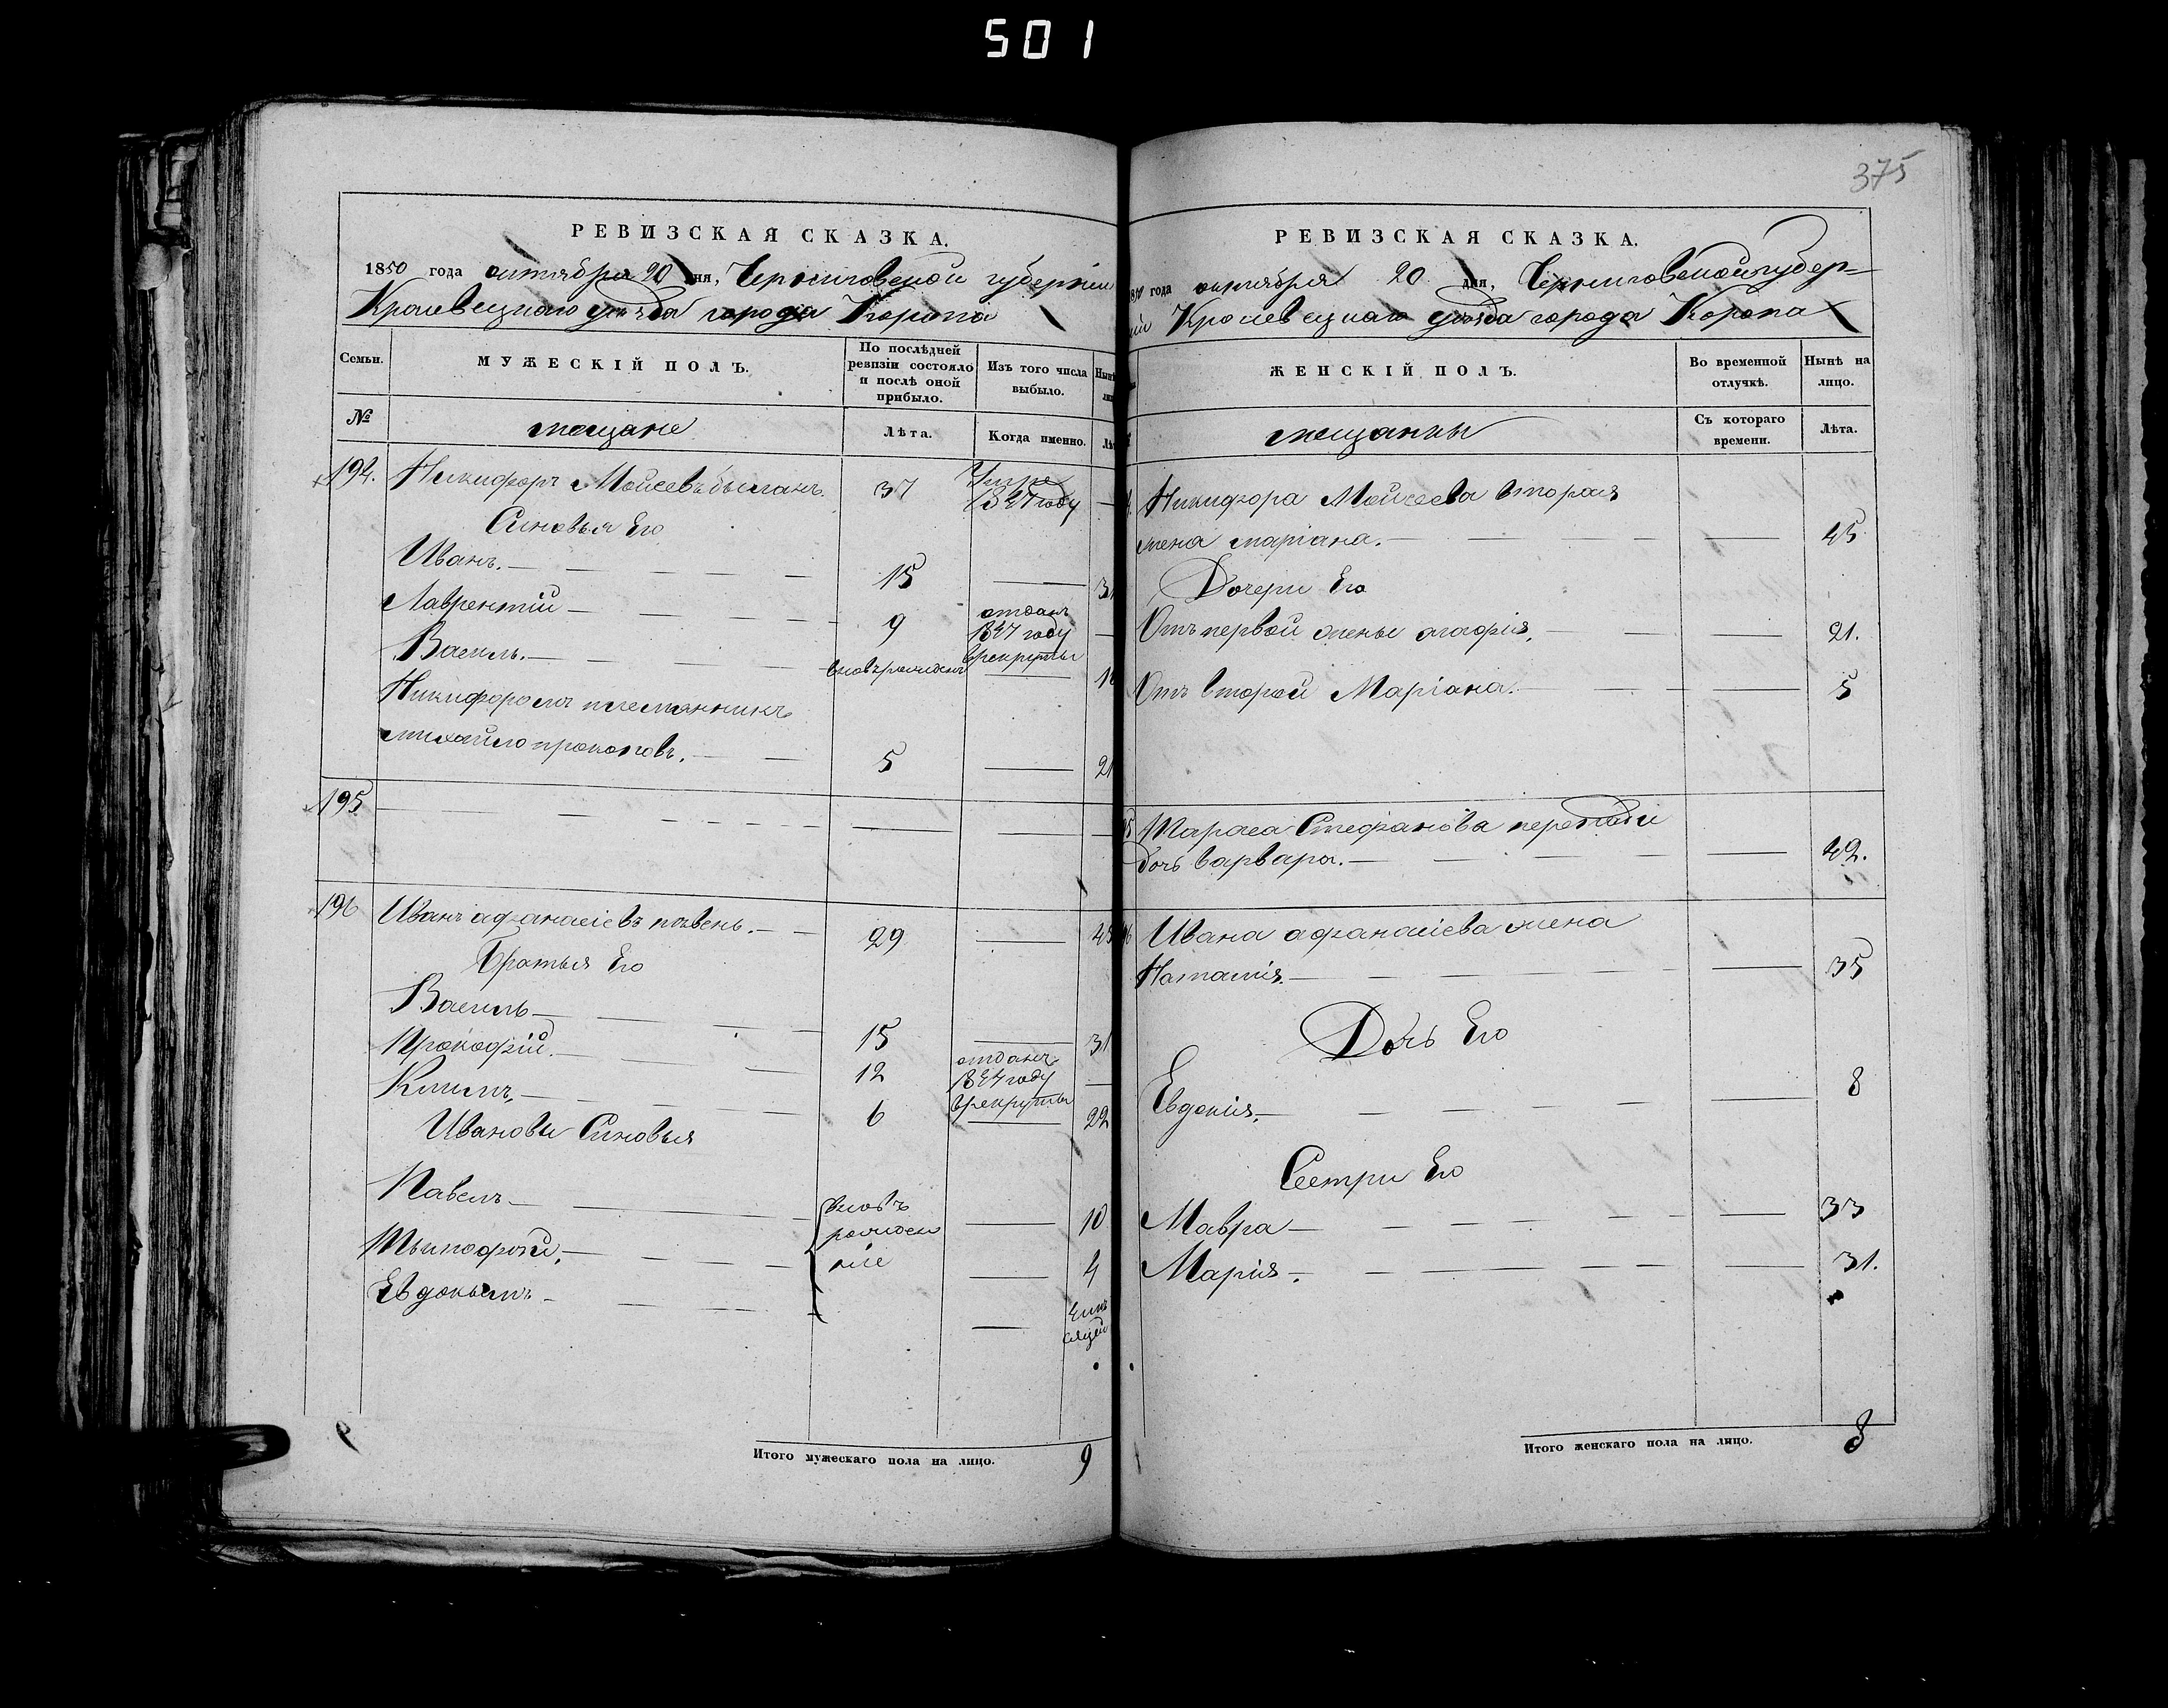 501
РЕВИЗСКАЯ СКАЗКА.
1850 года октября 20 дня, Черниговской губерніи
Кролевецкаго уѣзда города Коропа
Семьи.
МУЖЕСКІЙ ПОЛЪ.
По послѣдней ревизіи состояло и послѣ оной прибыло.
Изъ того числа выбыло.
№
мещане
Лѣта.
Когда именно.
194. Никифоръ Мойсеевъ 37 Умре 1847 году —
Синовья Его
Иванъ. — 15 — 31
Лаврентій — 9 отданъ 1847 году в рекруты —
Василь. — вновърожденъ — 1
Никифоровъ племянникъ
михайло прокоповъ. — 5 — 21
195 — — — —
196 Иванъ афанасіевъ пѣвень. — 29 — 45
Братья Его
Василь — 15 — 31
Прокофій. — 12 отданъ 1844 году врекруты —
Климъ, — 6 — 22
Ивановы Синовья
Павелъ — вновъ рожден ніе — 10
— 4
Евдокимъ — — 4 мѣсяцей
Итого мужескаго пола на лицо. 9
375
РЕВИЗСКАЯ СКАЗКА.
1850 года октября 20 дня, Черниговской губер=
ніи Кролевецкаго уѣзда города Коропа
ЖЕНСКІЙ ПОЛЪ.
Во временной отлучкѣ.
Нынѣ на лицо.
мещанки
Съ котораго времени.
Лѣта.
Никифора Мойсеева вторая
жена маріана. — — 45
Дочери Его
Отъ первой жены агафія, — — 21.
Отъ второй Маріана. — — 5
Тараса Стефанова
дочь варвара. — — 42.
Ивана афанасіева жена
Наталія. — — 35
Дочь Его
Евдокія, — — 8
Сестри Его
Мавра — — 33
Марія — — 31.
Итого женскаго пола на лицо. 8